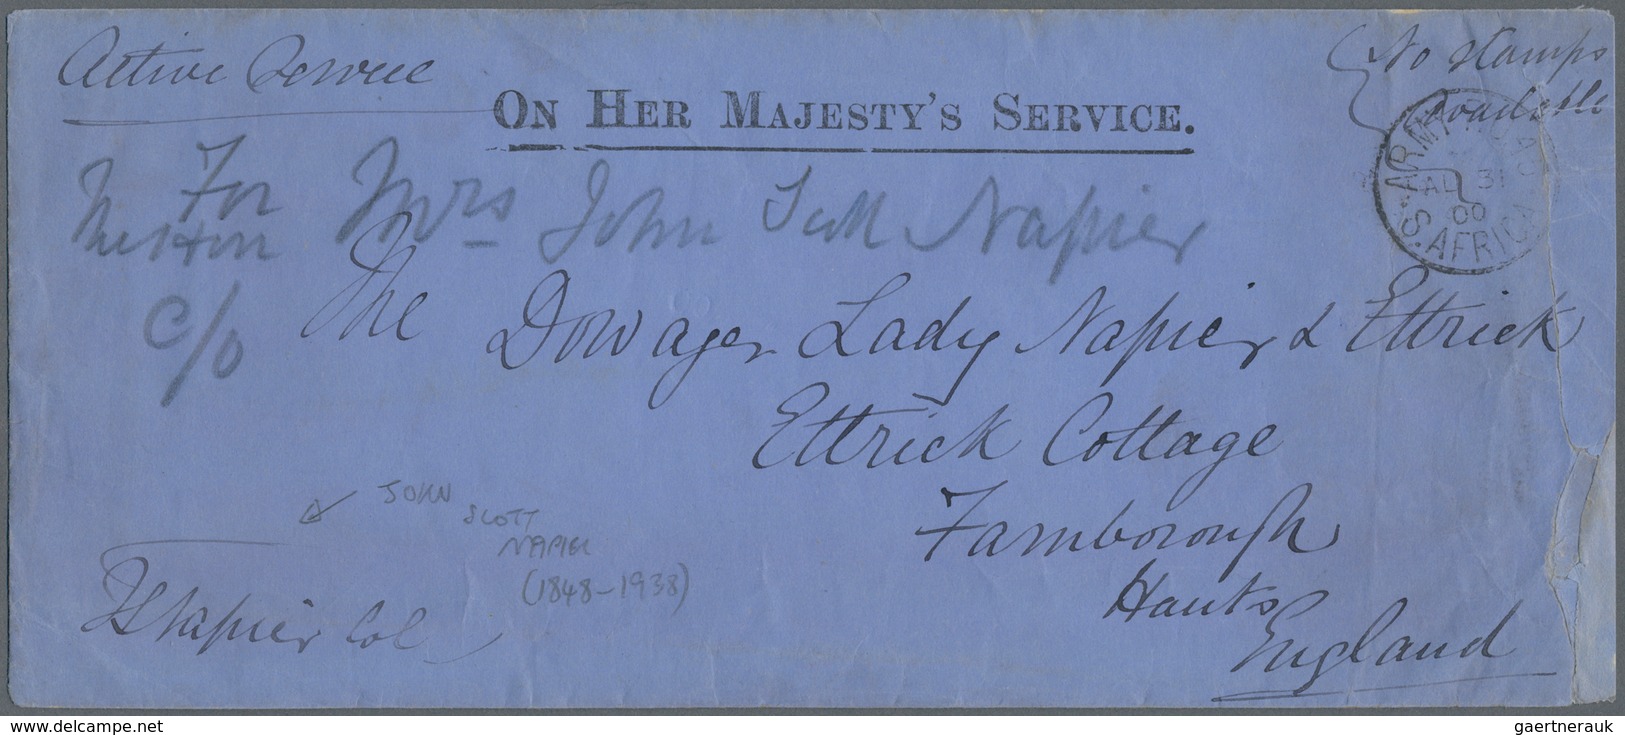 Active Service
No stamps
available
ON HER MAJESTY'S SERVICE.
ARMY
AU 31
00
S. AFRICA
For Mrs John Scott Napier
c/o
The Dowager Lady Napier & Ettrick
Ettrick Cottage
Farnborough
Hants
England
JOHN
SCOTT
NAPIER
(1848-1938)
JSNapier Col
delcampe.net
gaertnerauk